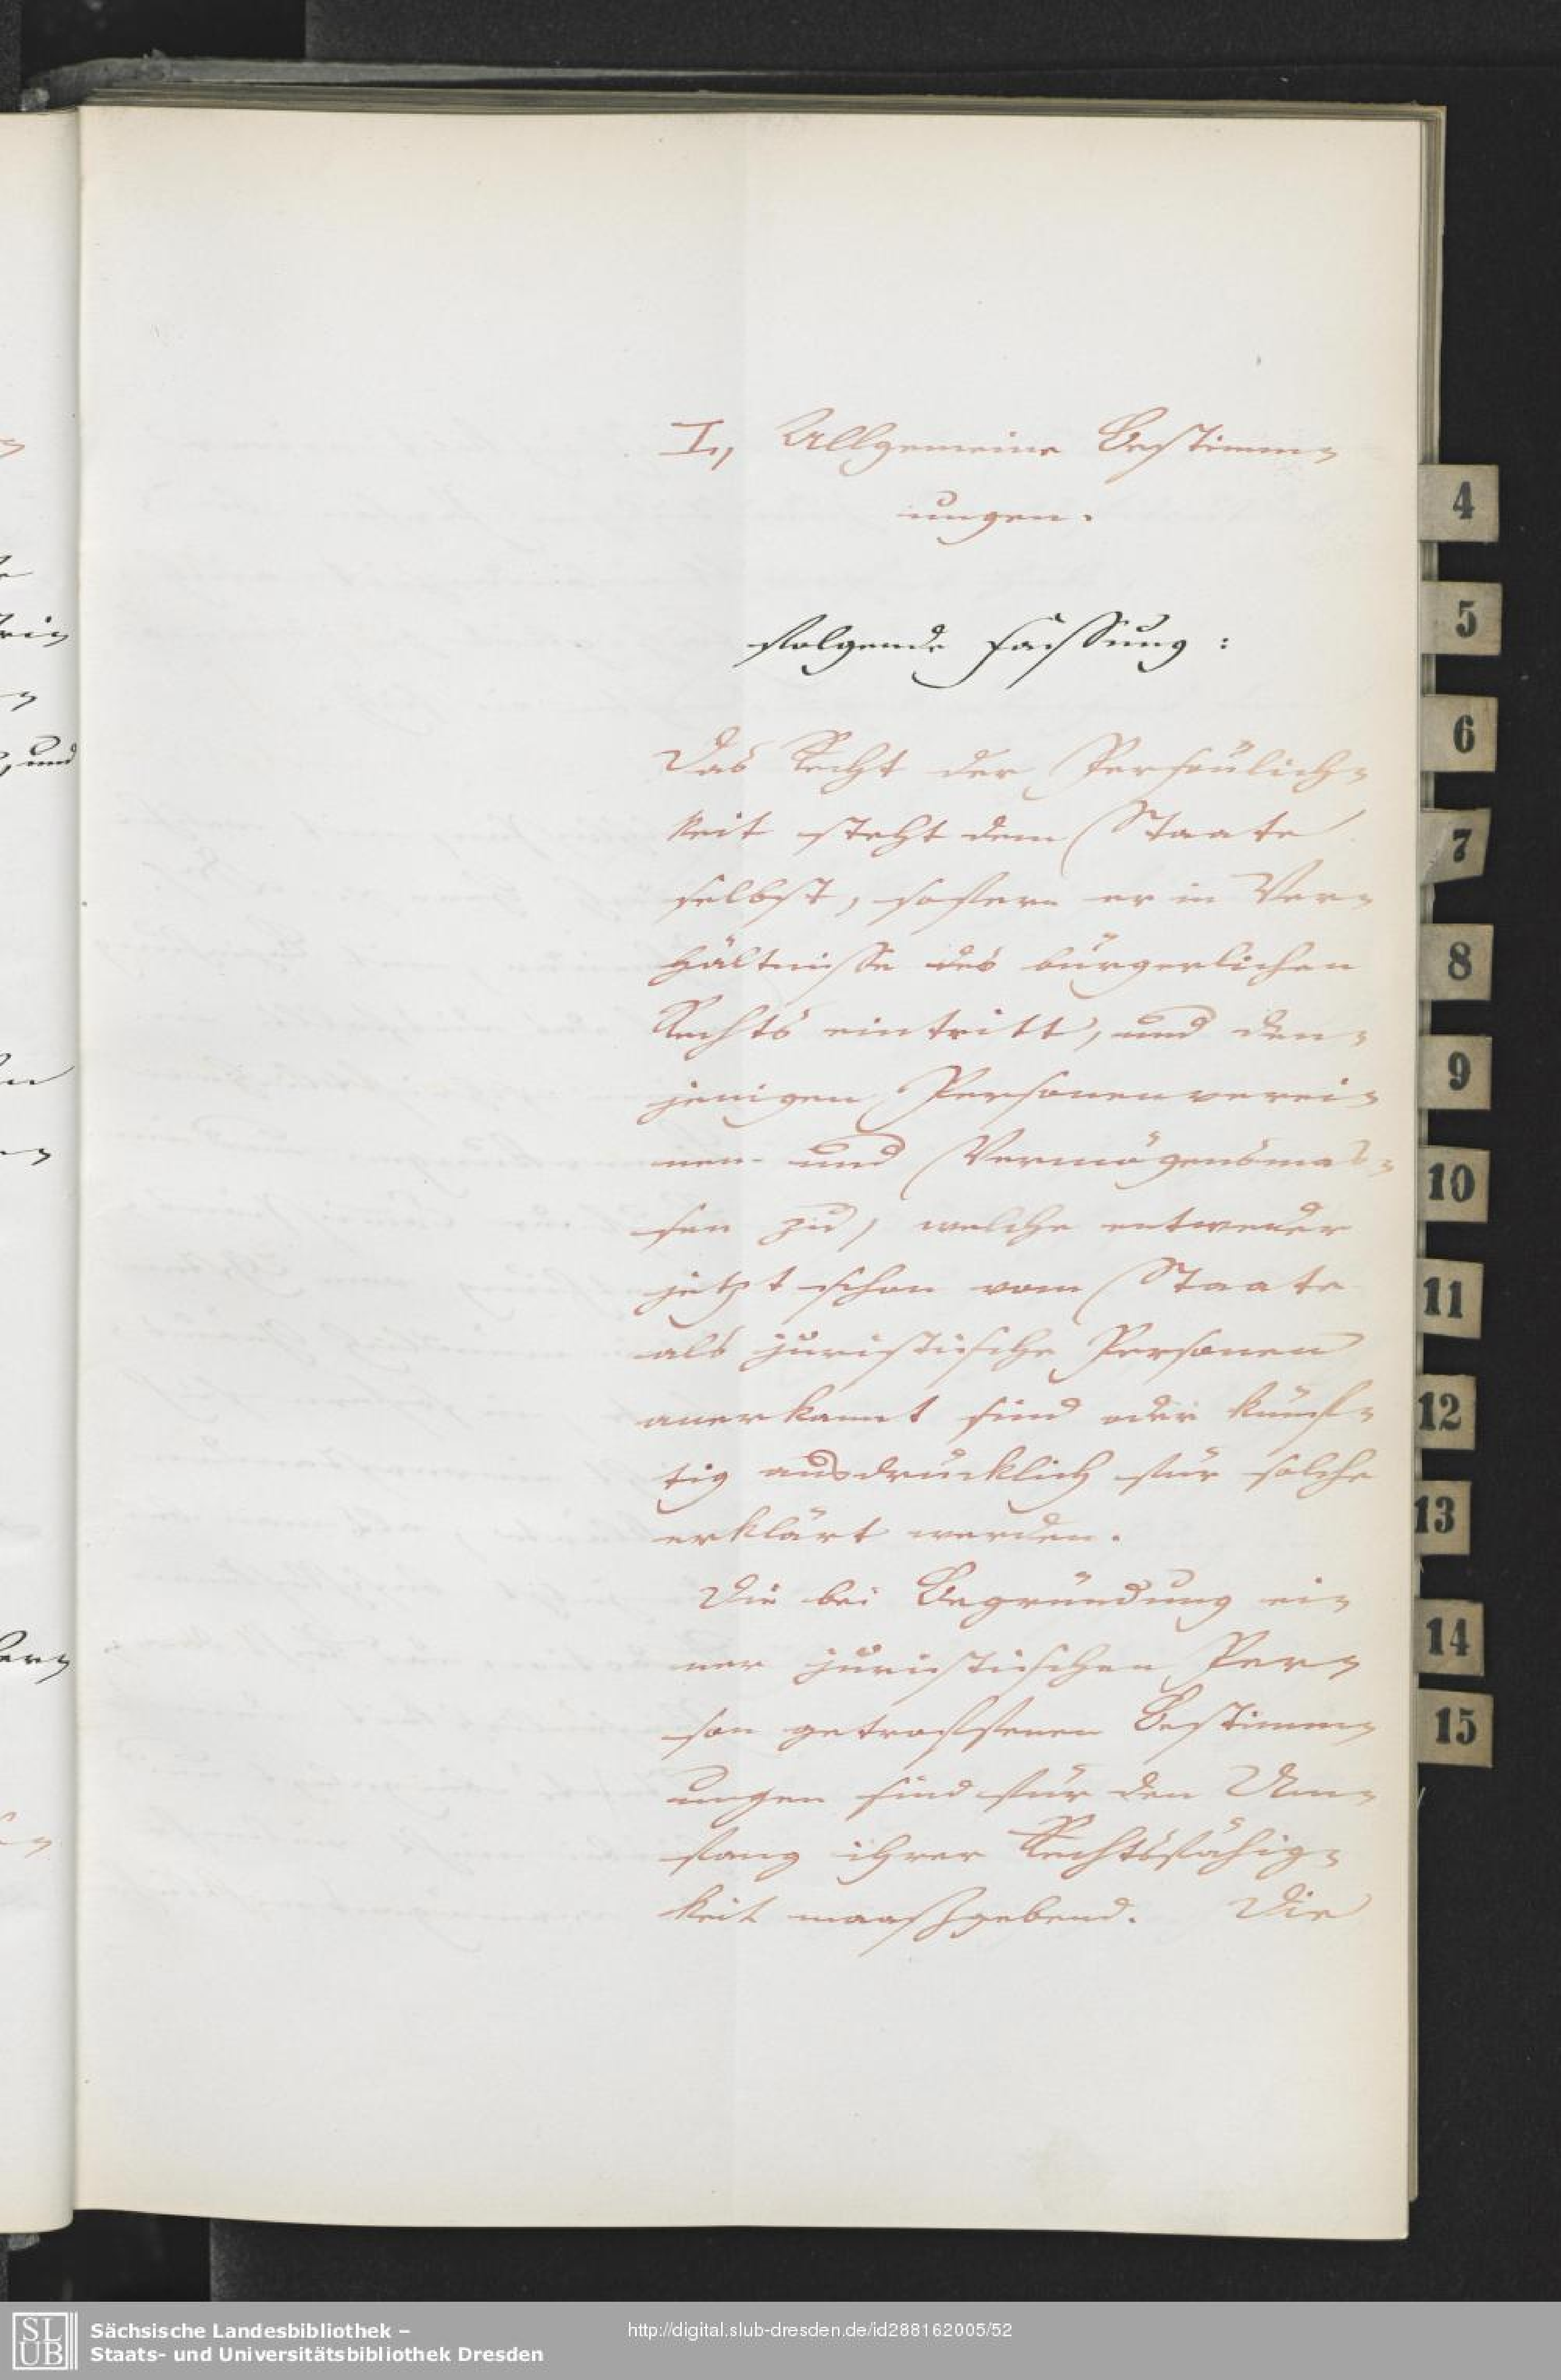 I., Allgemeine Bestimm-
ungen.
folgende Fassung:
Das Recht der Persönlich-
keit steht dem Staate
selbst, sofern er in Ver-
hältnisse des bürgerlichen
Rechts eintritt, und den-
jenigen Personenverei-
nen und Vermögensmas-
sen zu, welche entweder
jetzt schon vom Staate
als juristische Personen
anerkannt sind oder künf-
tig ausdrücklich für solche
erklärt werden.
Die bei Begründung ei-
ner juristischen Per-
son getroffenen Bestimm-
ungen sind für den Um-
fang ihrer Rechtsfähig-
keit maaßgebend. Die
4
5
6
7
8
9
10
11
12
13
14
15
und
SLUB
Sächsische Landesbibliothek –
Staats- und Universitätsbibliothek Dresden
http://digital.slub-dresden.de/id288162005/52